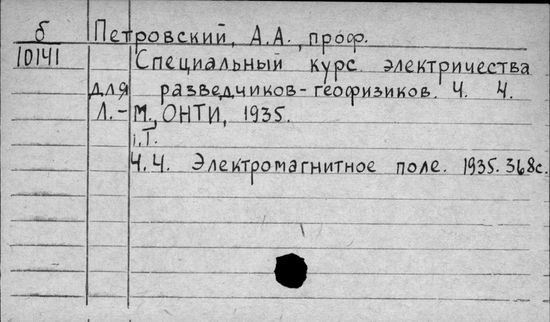 б Петровский, А.А., проф.
10141 Специальный курс электричества
для разведчиков-геофизиков. Ч. 4.
Л.-М., ОНТИ, 1935.
i.T.
Ч.4. Электромагнитное поле. 1935. 368с.